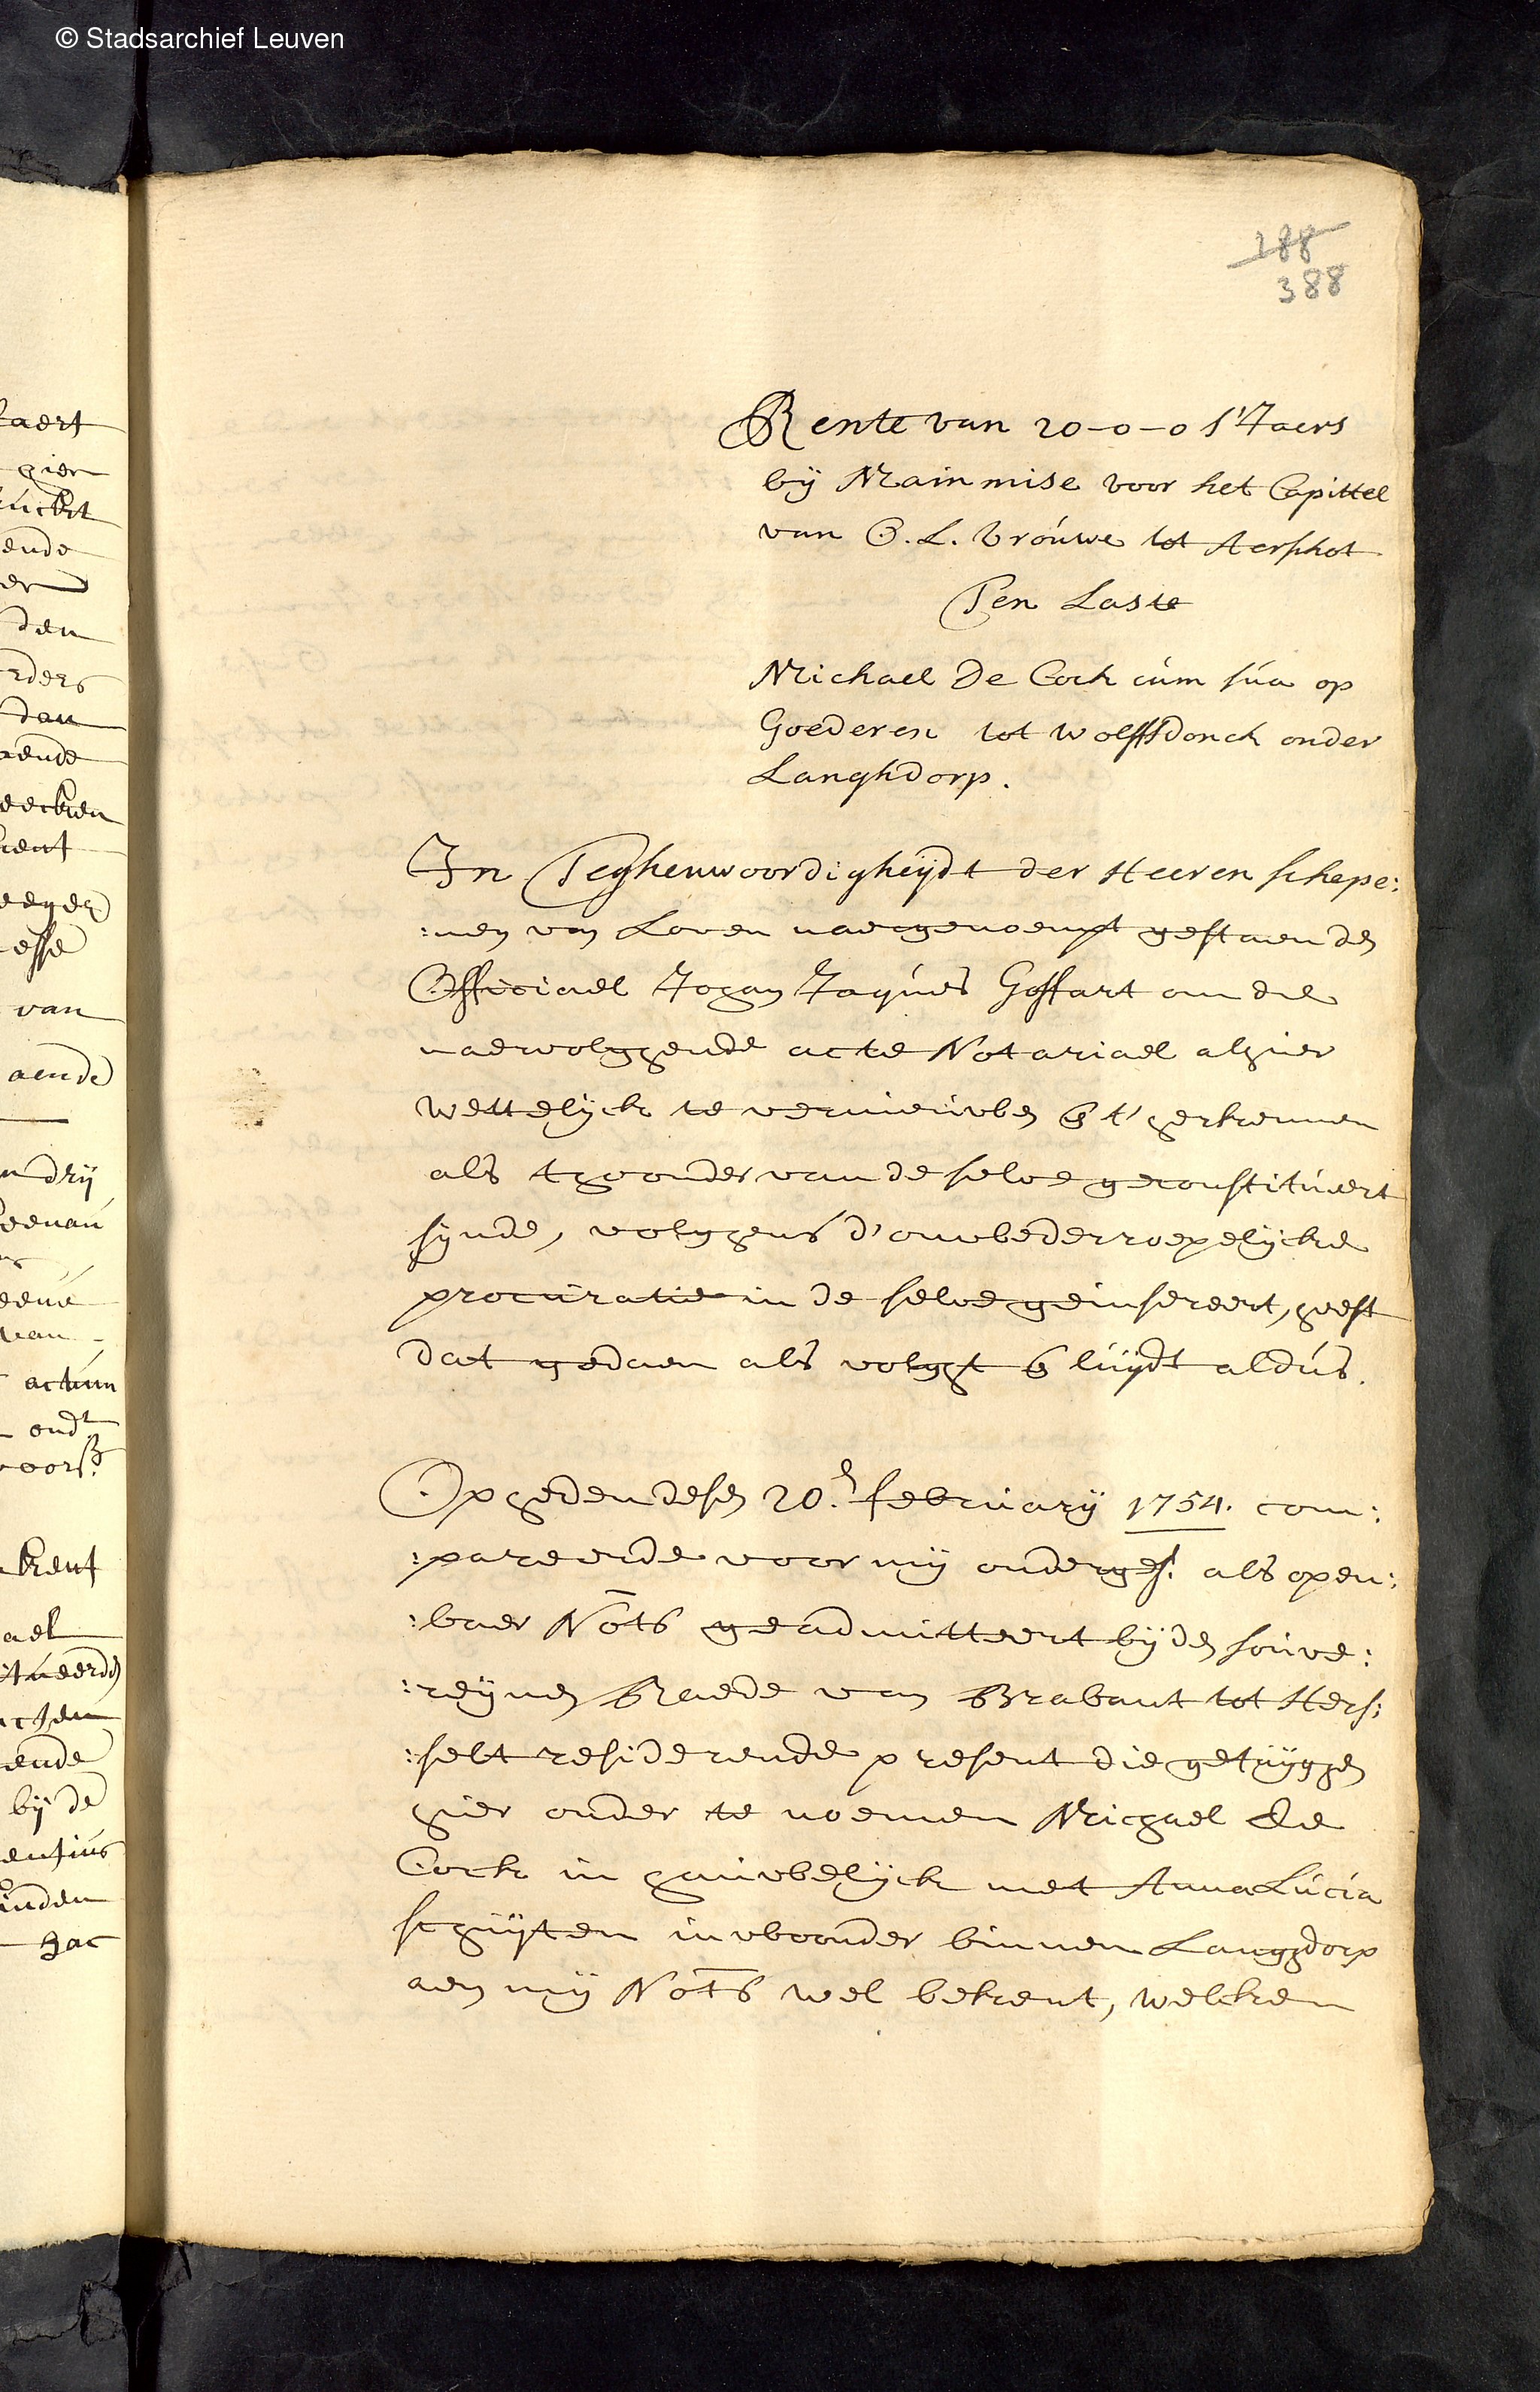 © Stadsarchief Leuven
188
388
Rente van 20-0-0 s'Jaers
bij Mainmise voor het Capittel
van O. L. Vrouwe tot Aerschot
Ten Laste
Michael De Cock cum sua op
Goederen tot wolffsdonck onder
Langhdorp.
In Teghenwoordigheijdt der Heeren schepe:
:nen van Loven naergenoempt gestaen den
Officiael Johan Jaques Goffart om de
naervolghende acte Notariael alhier
wettelijck te vernieuwen & t' herkennen
als thoonder van de selve geconstitueert
synde, volghens d'onwederroepelijcke
procuratie in de selve geinsereert, heeft
dat gedaen als volght & luijdt aldus.
Op heden desen 20.n february 1754. com:
:pareerde voor mij onderges: als open:
:baer Nots geadmitteert bij den souve:
:reijnen Raede van Brabant tot Hers:
:selt residerende present die getuijghen
hier onder te noemen Michael de
Cock in houwelijck met Anna Lucia
schuijten inwoonder binnen Langhdorp
aen mij Nots wel bekent, welcken
taert
hier
ende
den
rders
dan
eecken
esse
van
aende
drij
actum
ondt
voors.
kent
ael
ende
bij de
inden
hac